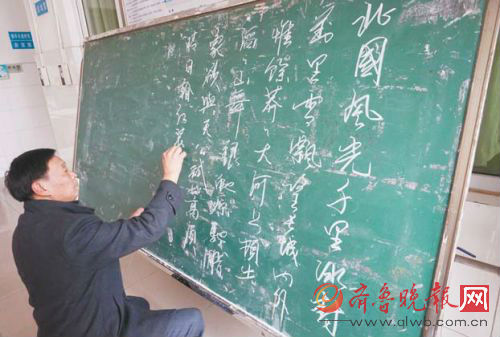 北國風光千里冰封
萬里雪飄望長城内外
惟餘莽々大河上下頓失
滔々山舞銀蛇原馳蠟
象欲與天公試比高須
晴日看红
齐鲁晚报网
www.qlwb.com.cn